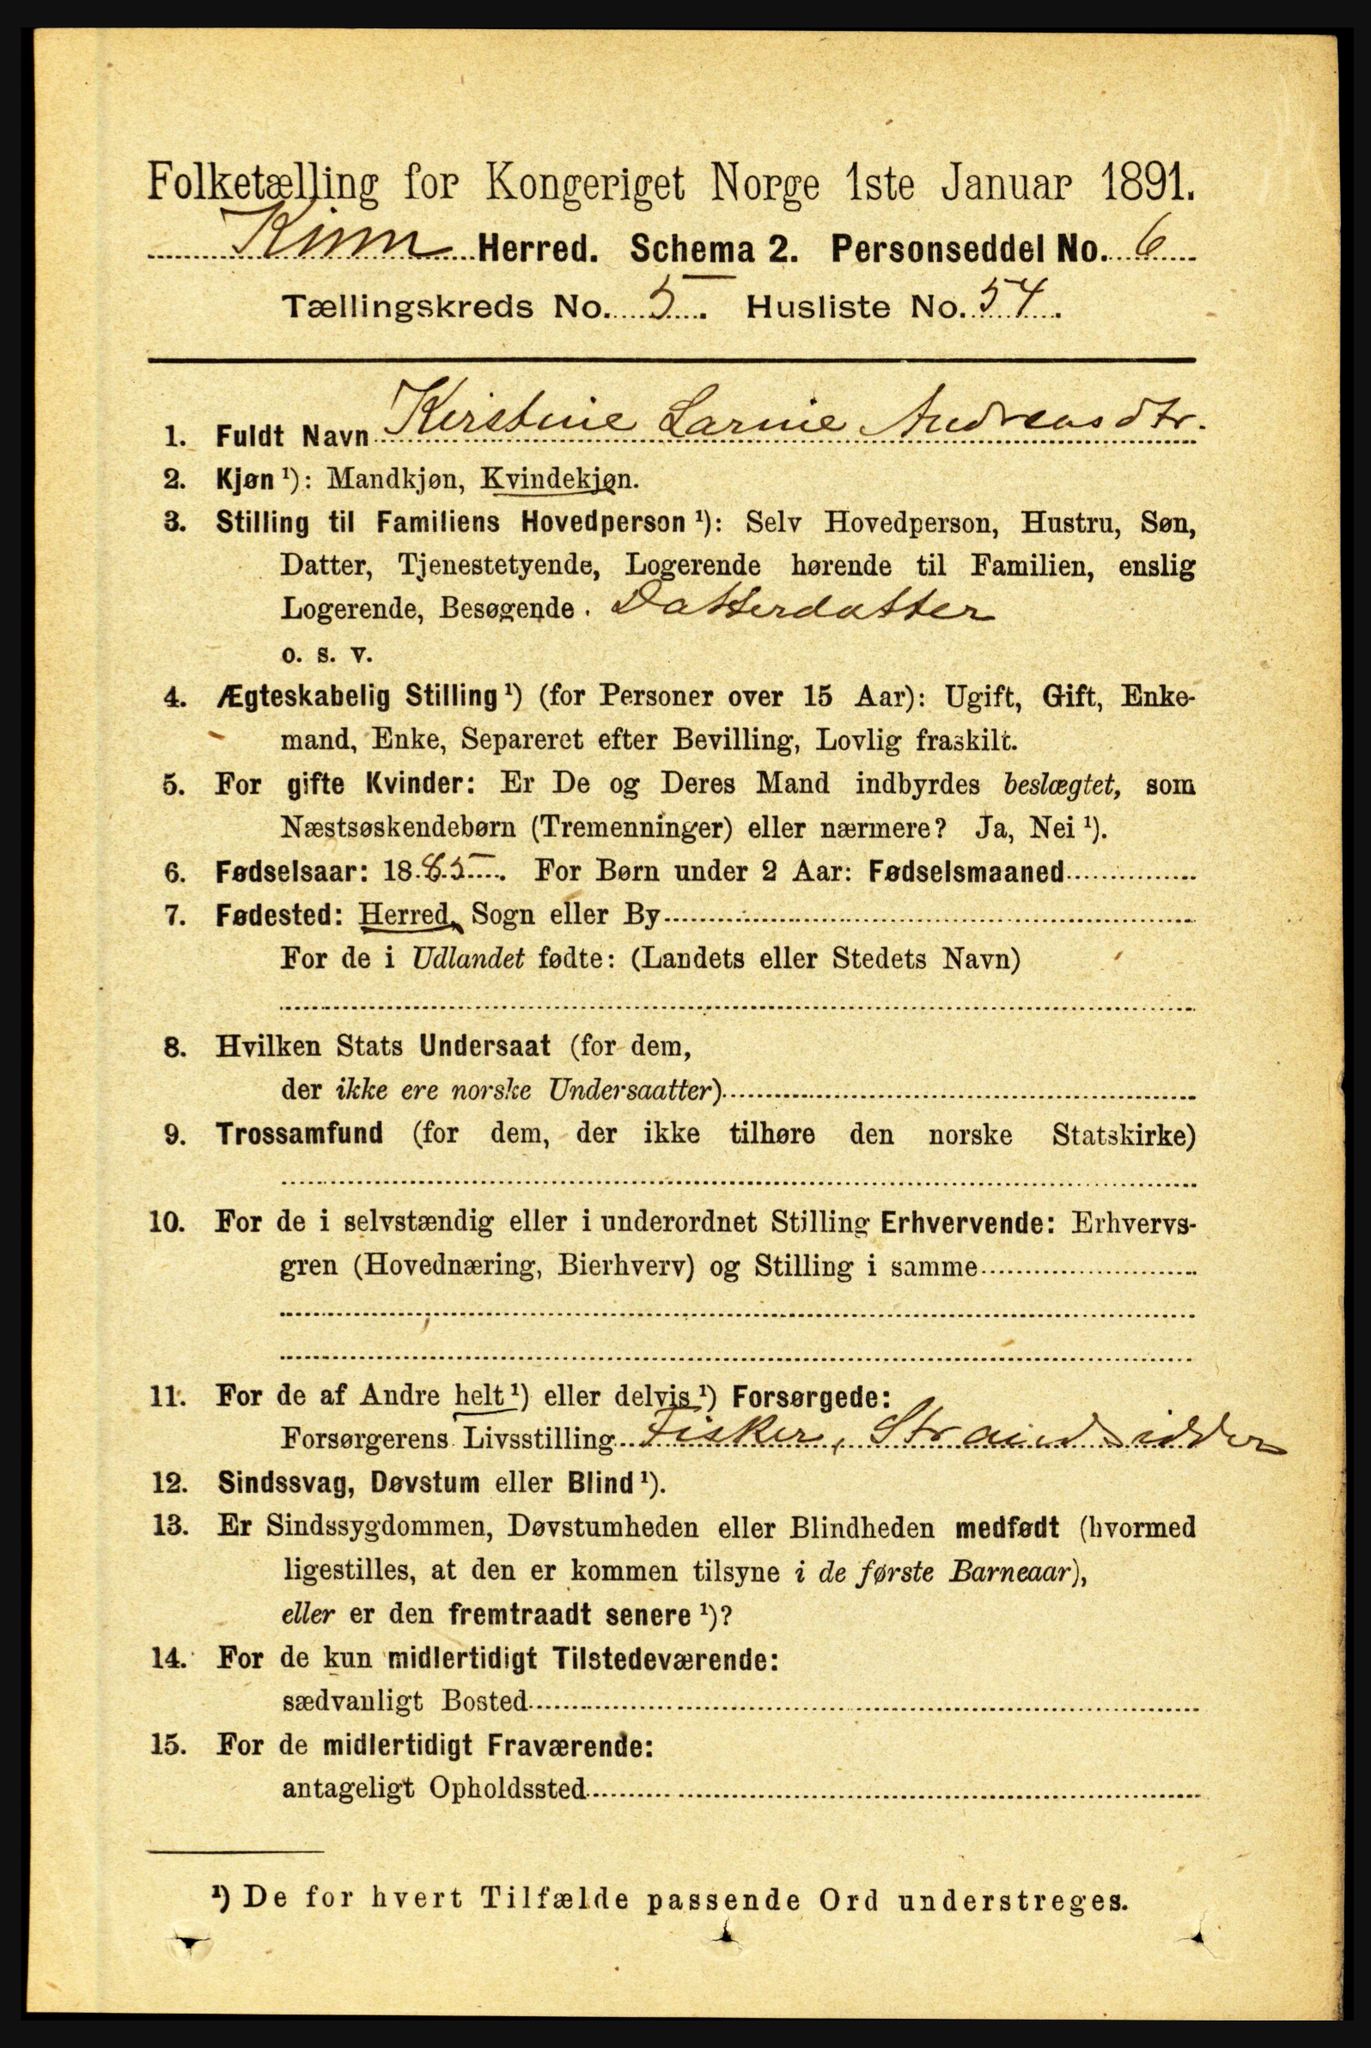 Folketælling for Kongeriget Norge 1ste Januar 1891.
Kinn Herred. Schema 2. Personseddel No. 6
Tællingskreds No. 5. Husliste No. 54.
1. Fuldt Navn Kirstine Larine Andreasdtr.
2. Kjøn ¹): Mandkjøn, Kvindekjøn.
3. Stilling til Familiens Hovedperson ¹): Selv Hovedperson, Hustru, Søn,
Datter, Tjenestetyende, Logerende hørende til Familien, enslig
Logerende, Besøgende . Datterdatter
o. s. v.
4. Ægteskabelig Stilling ¹) (for Personer over 15 Aar): Ugift, Gift, Enke-
mand, Enke, Separeret efter Bevilling, Lovlig fraskilt.
5. For gifte Kvinder: Er De og Deres Mand indbyrdes beslægtet, som
Næstsøskendebørn (Tremenninger) eller nærmere? Ja, Nei ¹).
6. Fødselsaar: 1885. For Børn under 2 Aar: Fødselsmaaned
7. Fødested: Herred, Sogn eller By
For de i Udlandet fødte: (Landets eller Stedets Navn)
8. Hvilken Stats Undersaat (for dem,
der ikke ere norske Undersaatter)
9. Trossamfund (for dem, der ikke tilhøre den norske Statskirke)
10. For de i selvstændig eller i underordnet Stilling Erhvervende: Erhvervs-
gren (Hovednæring, Bierhverv) og Stilling i samme
11. For de af Andre helt ¹) eller delvis ¹) Forsørgede:
Forsørgerens Livsstilling Fisker, Strandsidder
12. Sindssvag, Døvstum eller Blind ¹).
13. Er Sindssygdommen, Døvstumheden eller Blindheden medfødt (hvormed
ligestilles, at den er kommen tilsyne i de første Barneaar),
eller er den fremtraadt senere ¹)?
14. For de kun midlertidigt Tilstedeværende:
sædvanligt Bosted
15. For de midlertidigt Fraværende:
antageligt Opholdssted
¹) De for hvert Tilfælde passende Ord understreges.